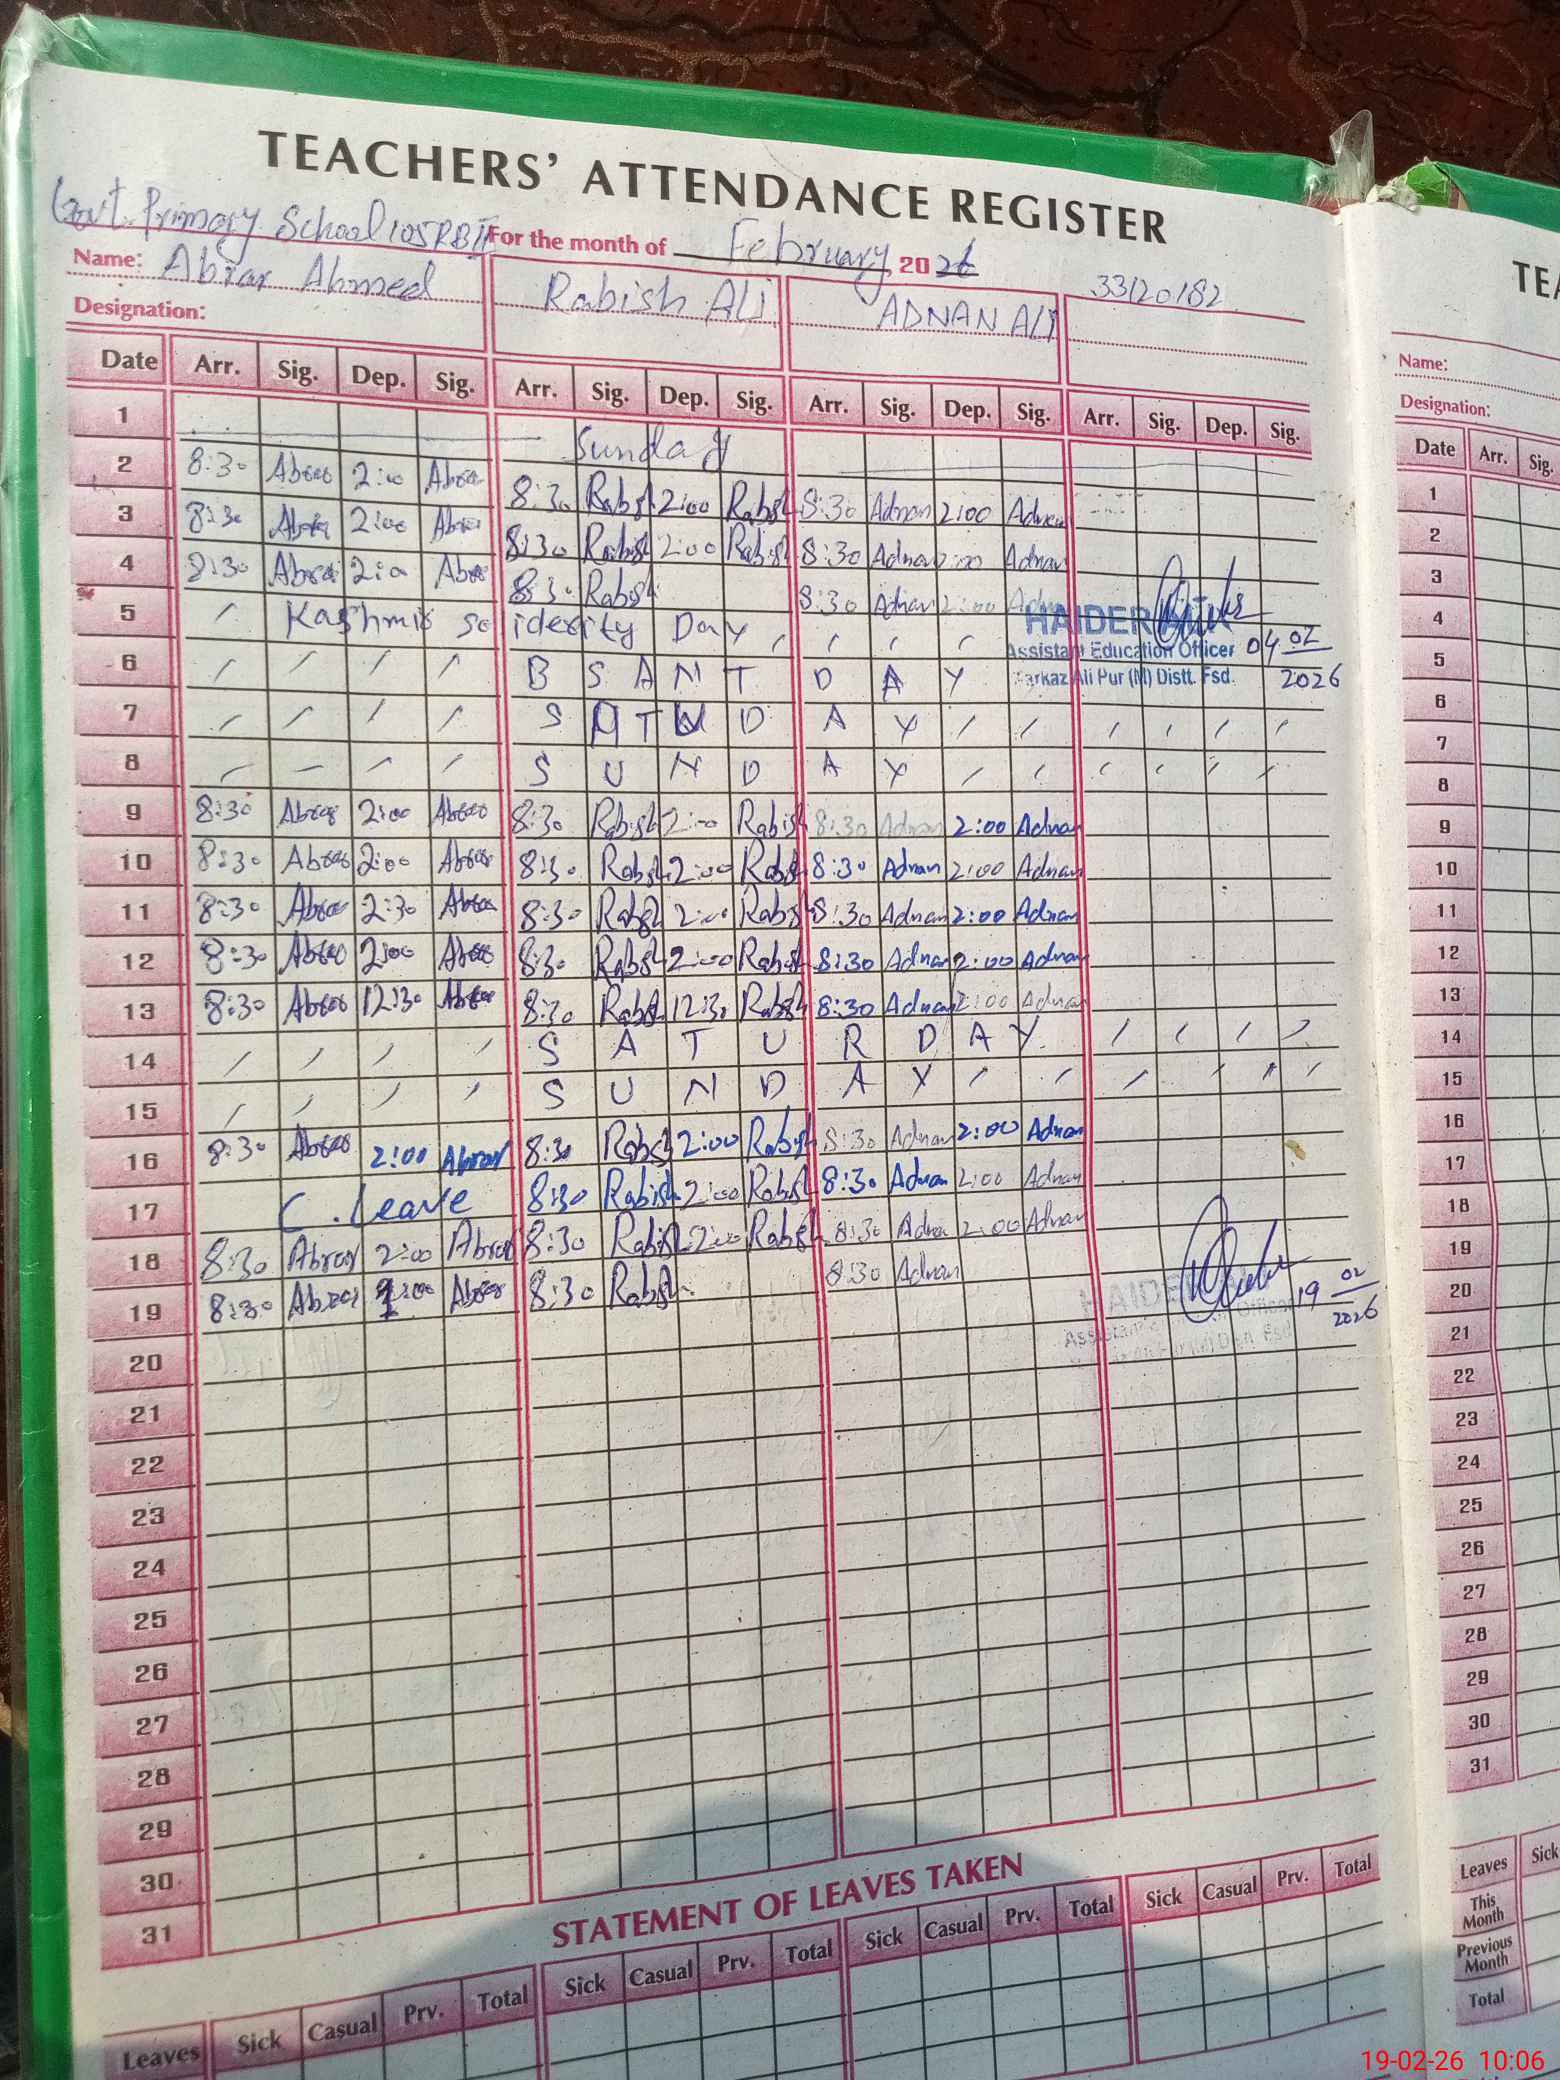 TEACHERS' ATTENDANCE REGISTER
Govt. Primary School 105 RB II For the month of February, 2026
Name: Abrar Ahmed Rabish Ali ADNAN ALI 33120182
Designation:
Date Arr. Sig. Dep. Sig. Arr. Sig. Dep. Sig. Arr. Sig. Dep. Sig. Arr. Sig. Dep. Sig.
1 Sunday
2 8:30 Abrar 2:00 Abrar 8:30 Rabish 2:00 Rabish 8:30 Adnan 2:00 Adnan
3 8:30 Abrar 2:00 Abrar 8:30 Rabish 2:00 Rabish 8:30 Adnan 2:00 Adnan
4 8:30 Abrar 2:00 Abrar 8:30 Rabish 8:30 Adnan 2:00 Adnan
HAIDER
Assistant Education Officer 04 02
Markaz Ali Pur (M) Distt. Fsd. 2026
5 Kashmir soliderity Day
6 B S A N T D A Y
7 S D A Y
8 S U N D A Y
9 8:30 Abrar 2:00 Abrar 8:30 Rabish 2:00 Rabish 8:30 Adnan 2:00 Adnan
10 8:30 Abrar 2:00 Abrar 8:30 Rabish 2:00 Rabish 8:30 Adnan 2:00 Adnan
11 8:30 Abrar 2:30 Abrar 8:30 Rabish 2:00 Rabish 8:30 Adnan 2:00 Adnan
12 8:30 Abrar 2:00 Abrar 8:30 Rabish 2:00 Rabish 8:30 Adnan 2:00 Adnan
13 8:30 Abrar 12:30 Abrar 8:30 Rabish 12:30 Rabish 8:30 Adnan 2:00 Adnan
14 S A T U R D A Y
15 S U N D A Y
16 8:30 Abrar 2:00 Abrar 8:30 Rabish 2:00 Rabish 8:30 Adnan 2:00 Adnan
17 C. Leave 8:30 Rabish 2:00 Rabish 8:30 Adnan 2:00 Adnan
18 8:30 Abrar 2:00 Abrar 8:30 Rabish 2:00 Rabish 8:30 Adnan 2:00 Adnan
19 8:30 Abrar 1:00 Abrar 8:30 Rabish 8:30 Adnan
HAIDER 19 02
2026
20
21
22
23
24
25
26
27
28
29
30
31
STATEMENT OF LEAVES TAKEN
Leaves Sick Casual Prv. Total Sick Casual Prv. Total Sick Casual Prv. Total Sick Casual Prv. Total
TEA
Name:
Designation:
Date Arr. Sig.
1
2
3
4
5
6
7
8
9
10
11
12
13
14
15
16
17
18
19
20
21
22
23
24
25
26
27
28
29
30
31
Leaves Sick
This Month
Previous Month
Total
19-02-26 10:06